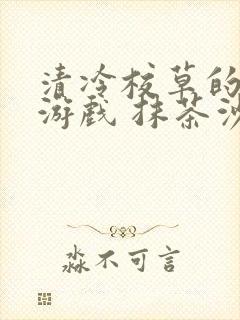 清冷校草的
游戏 抹茶沙
淼不可言